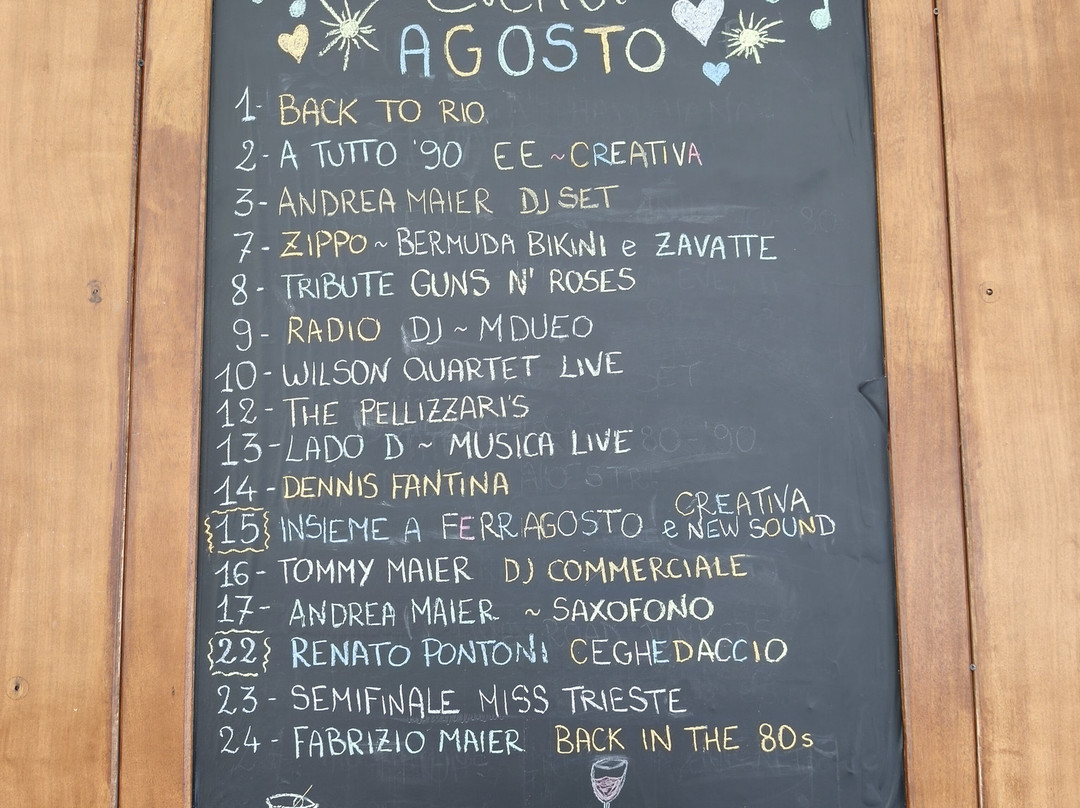 AGOSTO
1- BACK TO RIO
2- A TUTTO '90 EE ~ CREATIVA
3- ANDREA MAIER DJ SET
7- ZIPPO ~ BERMUDA BIKINI e ZAVATTE
8- TRIBUTE GUNS N' ROSES
9- RADIO DJ ~ MDUEO
10- WILSON QUARTET LIVE
12- THE PELLIZZARI'S
13- LADO D ~ MUSICA LIVE
14- DENNIS FANTINA
15 INSIEME A FERRAGOSTO CREATIVA
e NEW SOUND
16- TOMMY MAIER DJ COMMERCIALE
17- ANDREA MAIER ~ SAXOFONO
22 RENATO PONTONI CEGHEDACCIO
23- SEMIFINALE MISS TRIESTE
24- FABRIZIO MAIER BACK IN THE 80s